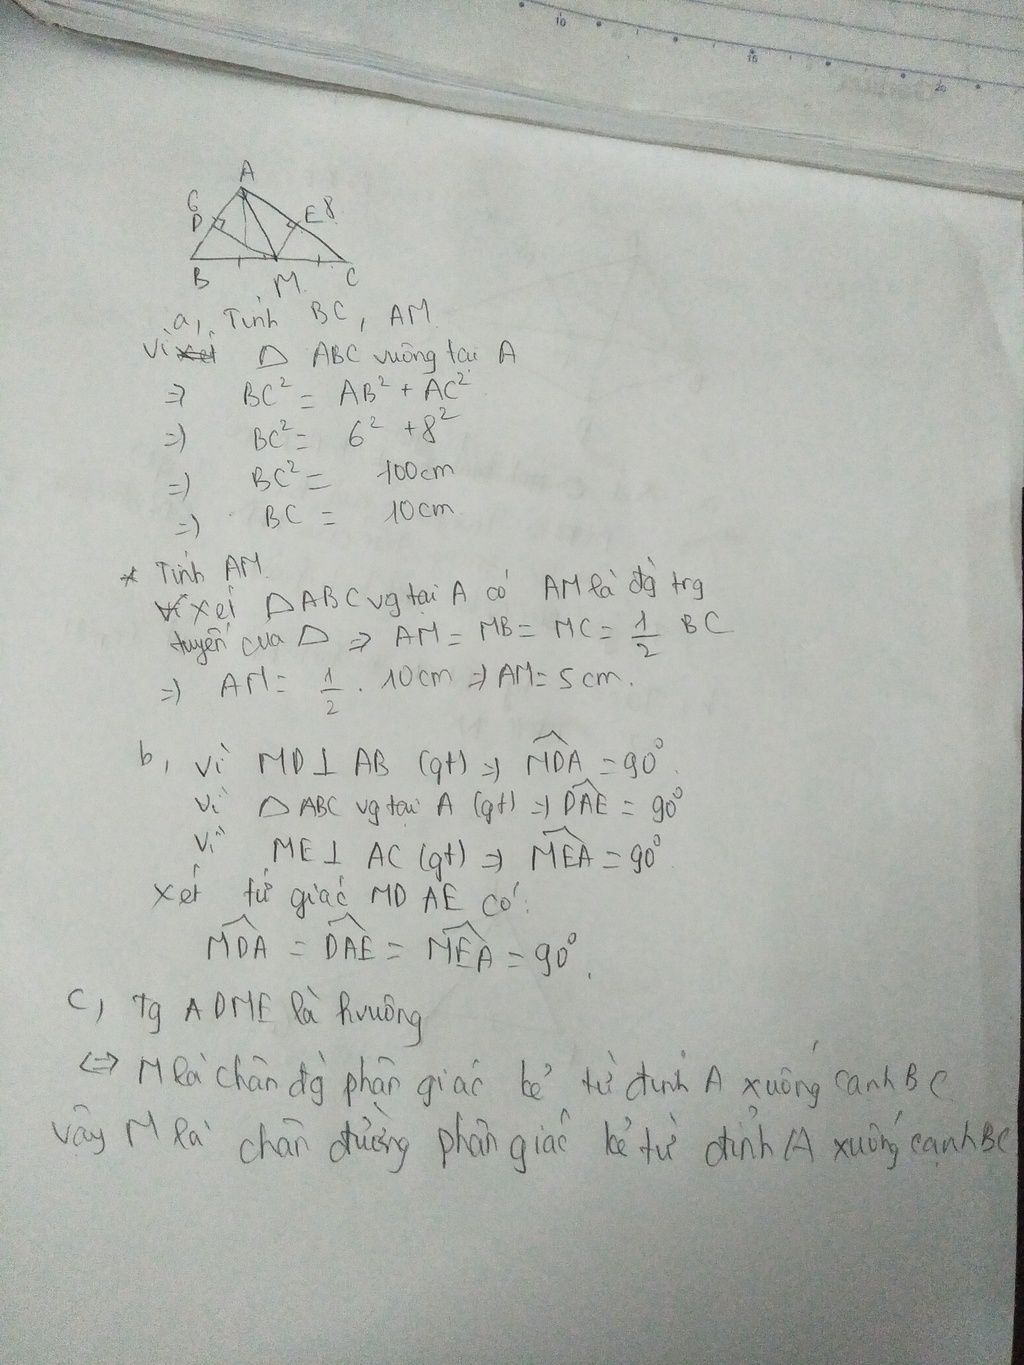 10
15
20
A
6
D
E 8
B
M
C
a, Tính BC, AM
Vì xét △ ABC vuông tại A
=> BC² = AB² + AC²
=> BC² = 6² + 8²
=> BC² = 100cm
=> BC = 10cm
* Tính AM
Vì xét △ABC vg tại A có AM là đg trg
tuyến của △ => AM = MB = MC = 1/2 BC
=> AM = 1/2 . 10cm => AM = 5cm.
b, Vì MD ⊥ AB (gt) => MDA = 90°.
Vì △ ABC vg tại A (gt) => DAE = 90°
Vì ME ⊥ AC (gt) => MEA = 90°
xét tứ giác MDAE có:
MDA = DAE = MEA = 90°.
c, Tg ADME là hvuông
<=> M là chân đg phân giác kẻ từ đỉnh A xuống cạnh BC
vậy M là chân đường phân giác kẻ từ đỉnh A xuống cạnh BC